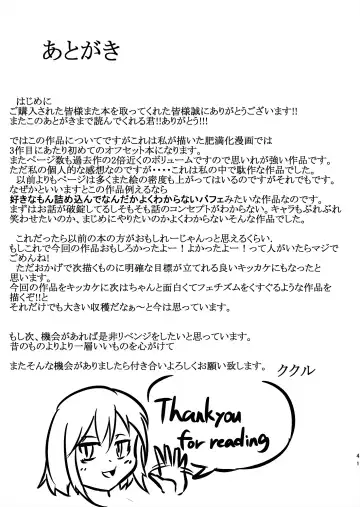 あとがき
はじめに
ご購入された皆様また本を取ってくれた皆様誠にありがとうございます!!
またこのあとがきまで読んでくれる君!!ありがとう!!!
ではこの作品についてですがこれは私が描いた肥満化漫画では
3作目にあたり初めてのオフセット本になります。
またページ数も過去作の2倍近くのボリュームですので思いれが強い作品です。
ただ私の個人的な感想なのですが・・・・これは私の中で駄作な作品でした。
以前よりもページは多くまた絵の密度も上がってはいるのですがそれでもです。
なぜかといいますとこの作品例えるなら
好きなもん詰め込んでなんだかよくわからないパフェみたいな作品なのです。
まずはお話が破綻してるしそもそも話のコンセプトがわからない。キャラもぶれぶれ
笑わせたいのか、まじめにやりたいのかよくわからないそんな作品でした。
これだったら以前の本の方がおもしれーじゃんっと思えるくらい.
もしこれで今回の作品おもしろかったよー!よかったよー!って人がいたらマジで
ごめんね!
ただおかげで次描くものに明確な目標が立てれる良いキッカケにもなったと
思います。
今回の作品をキッカケに次はちゃんと面白くてフェチズムをくすぐるような作品を
描くぞ!!と
それだけでも大きい収穫だなぁ～と今は思っています。
もし次、機会があれば是非リベンジをしたいと思っています。
昔のものよりより一層いいものを心がけて
またそんな機会がありましたら付き合いよろしくお願い致します。
ククル
Thankyou
for reading
41